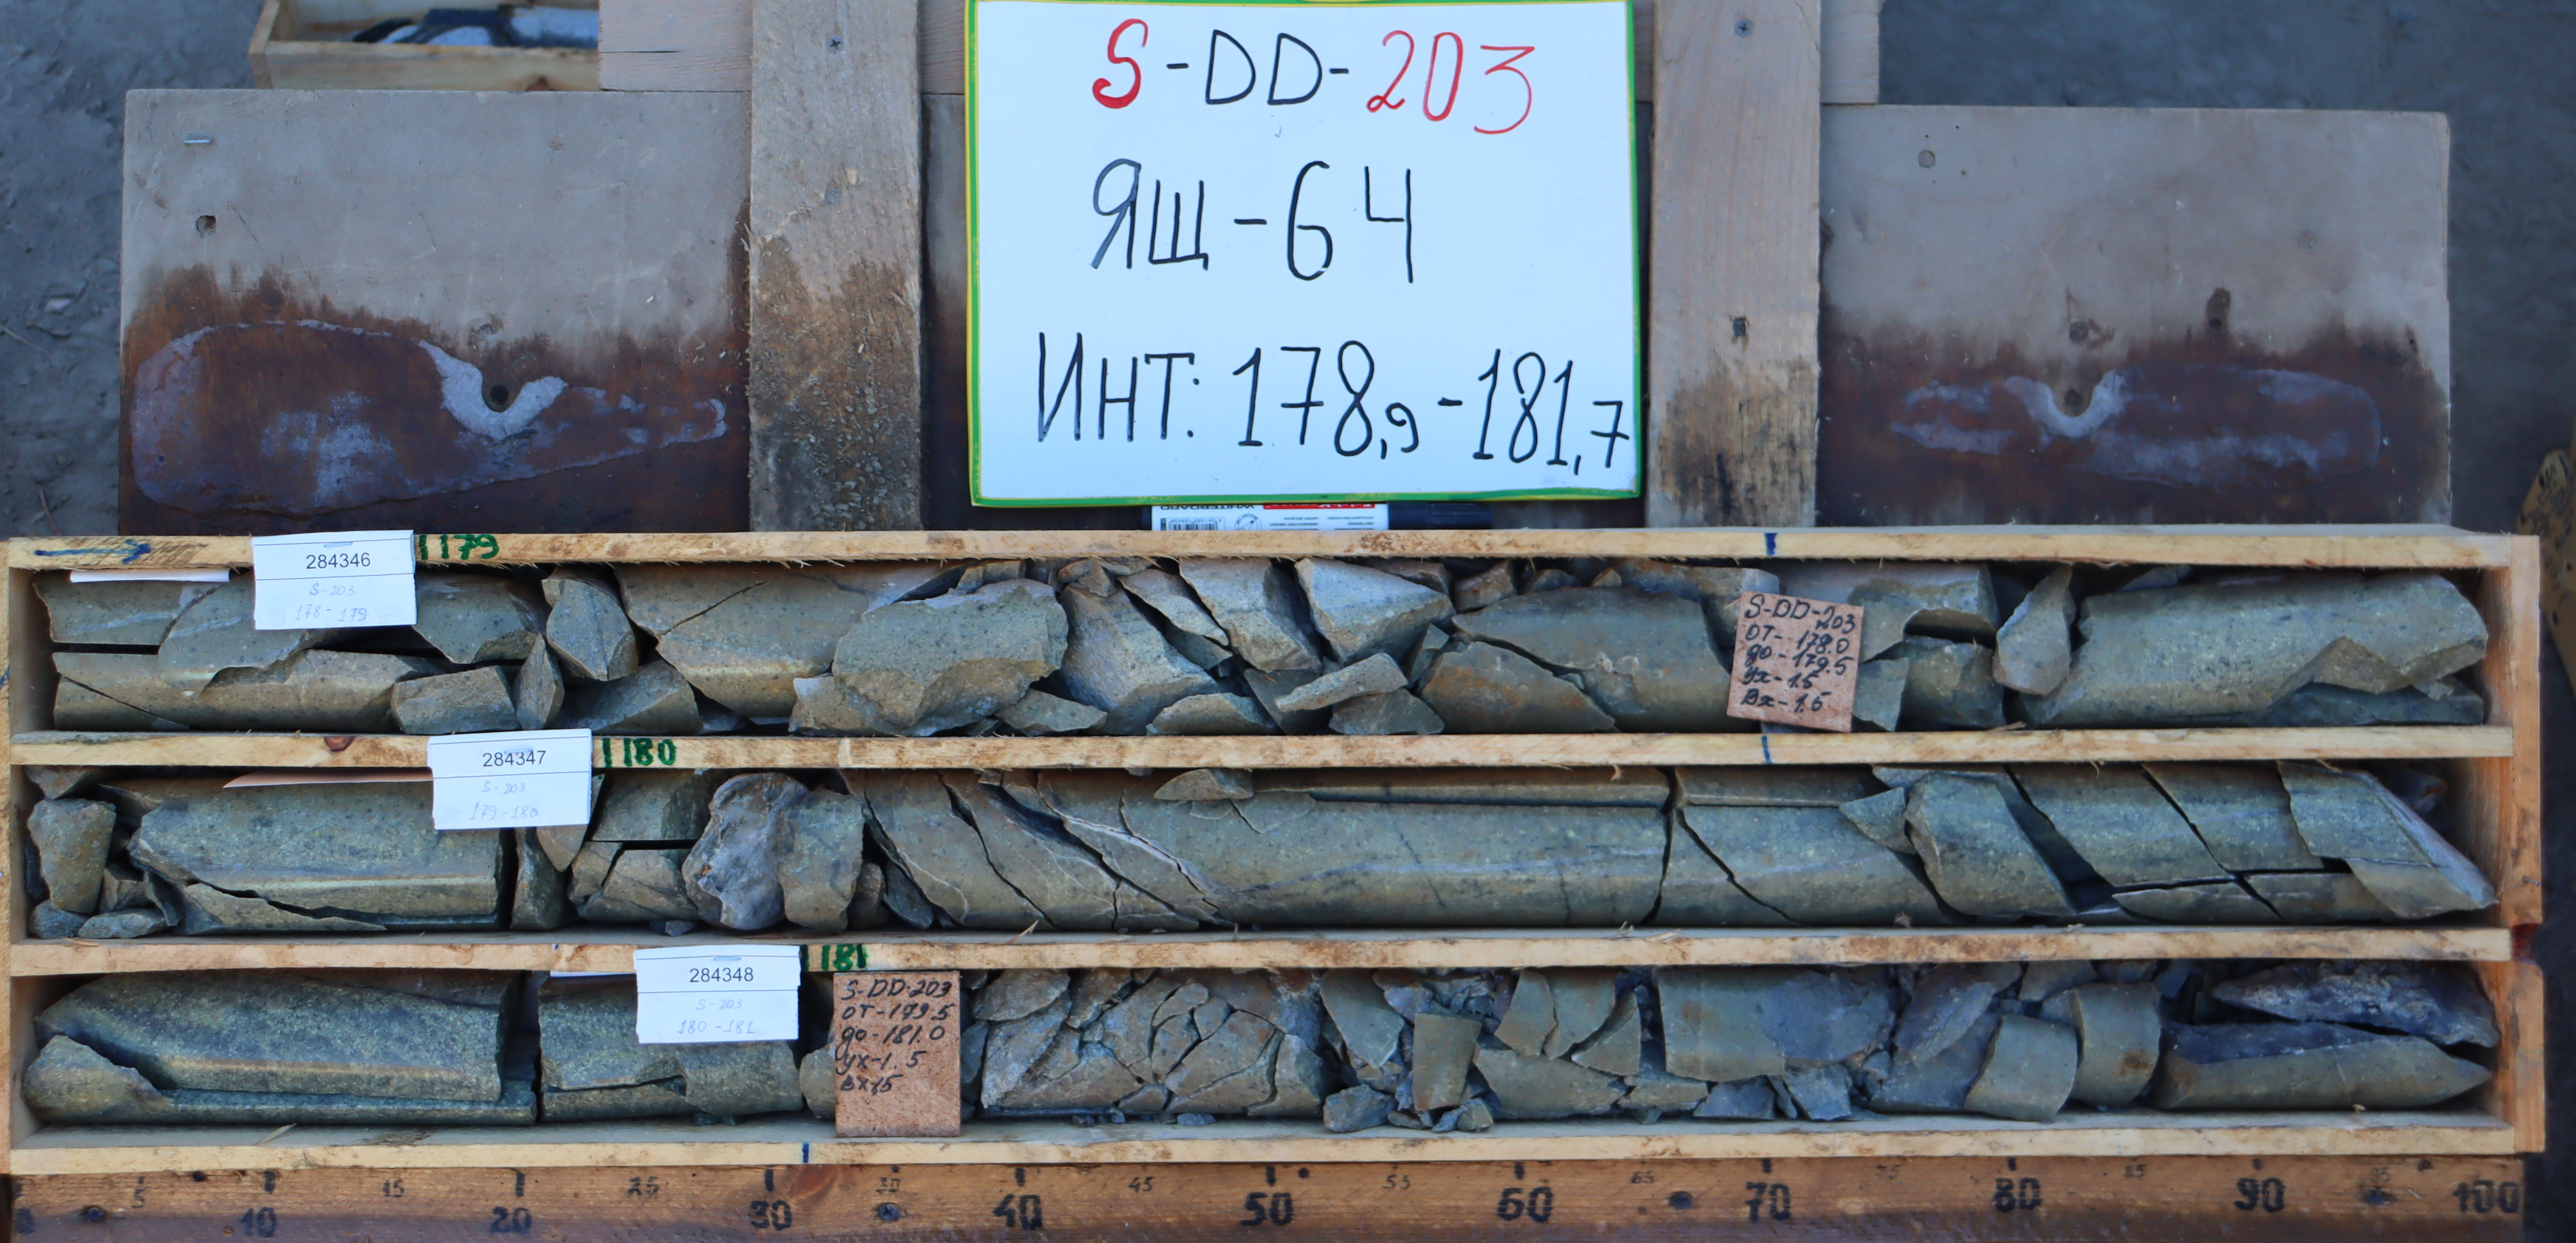 S-DD-203
ЯЩ-64
ИНТ: 178,9-181,7
179
284346
S-203
178-179
S-DD-203
от-178.0
до-179.5
Ух-1.5
Вх-1.5
180
284347
S-203
179-180
181
284348
S-203
180-181
S-DD-203
от-179.5
до-181.0
Ух-1.5
Вх-1.5
5 10 15 20 25 30 40 45 50 55 60 65 70 75 80 85 90 95 100